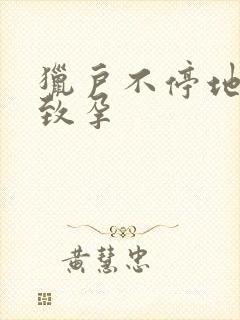 獵户不停地
致孕
黄慧忠